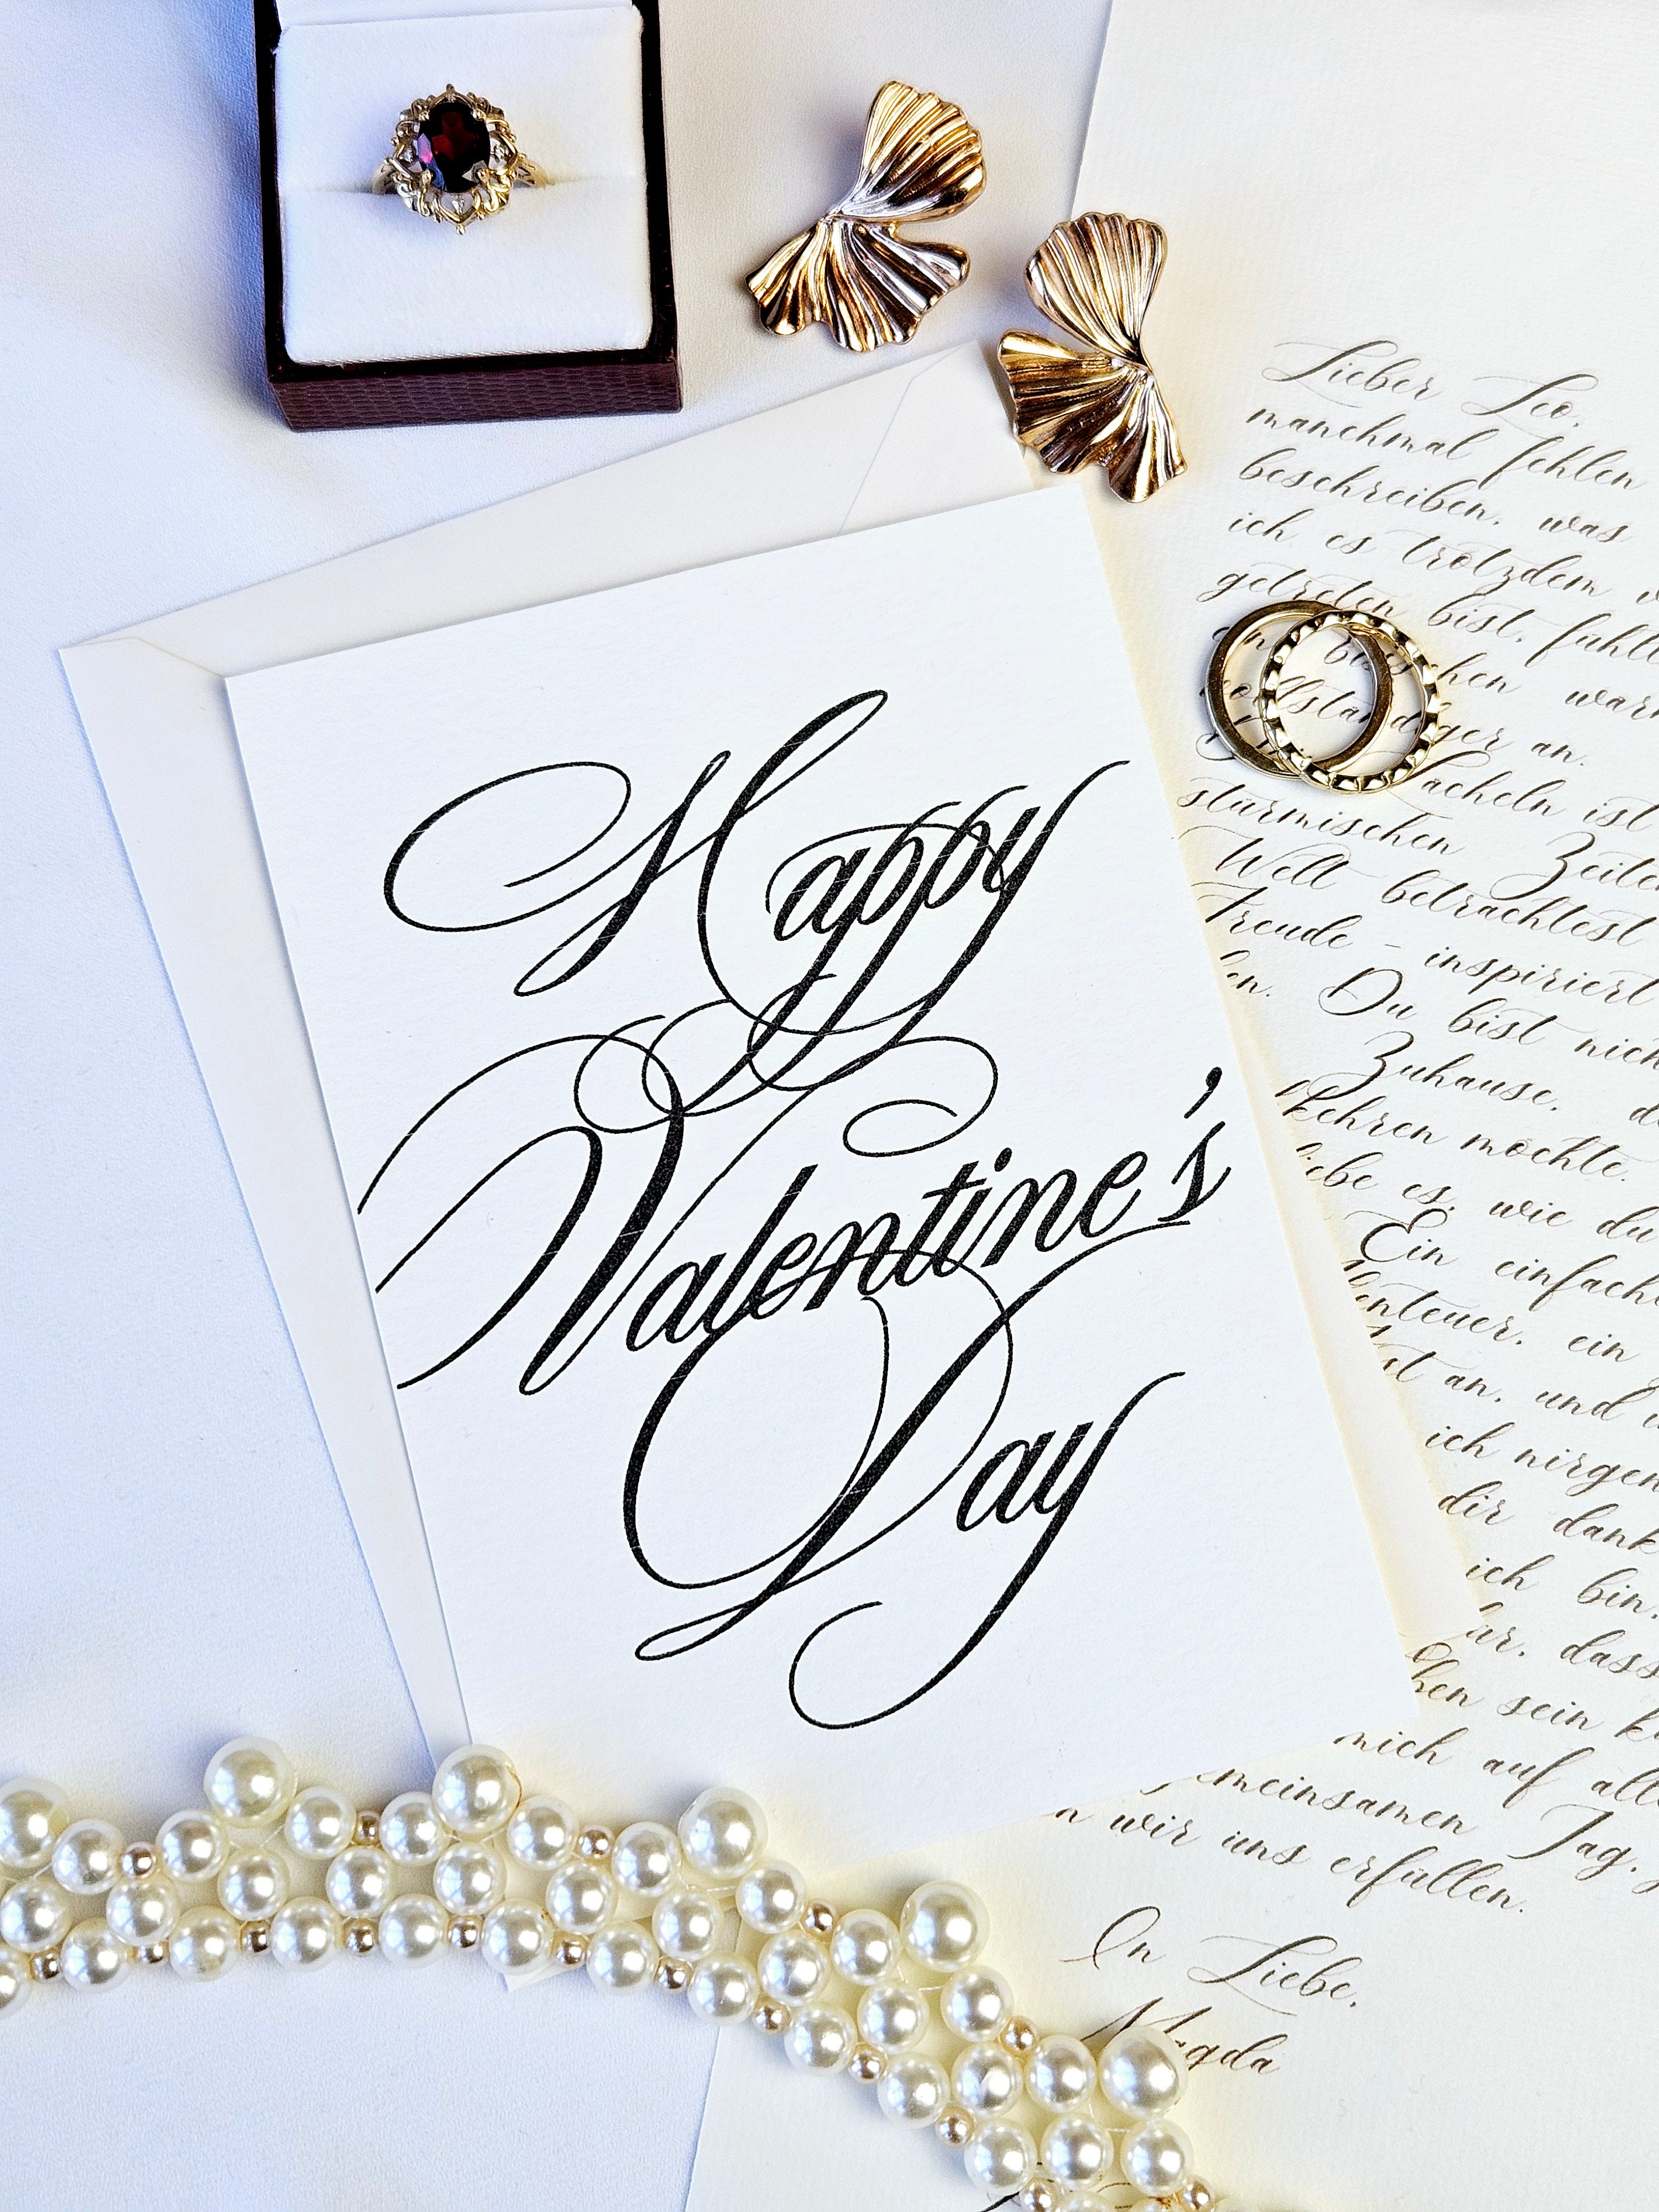 Happy
Valentine's
Day
Lieber Leo,
manchmal fehlen
beschreiben, was
ich es trotzdem
getreten bist, fühlt
warm
an.
Lächeln ist
stürmischen Zeiten
Welt betrachtest
Freude - inspiriert
Du bist nicht
Zuhause,
kehren möchte.
es, wie du
Ein einfach
ein
an, und
ich nirgen
dir dank
ich bin,
dass
sein
mich auf alle
gemeinsamen Tag,
wir uns erfüllen.
In Liebe,
Magda